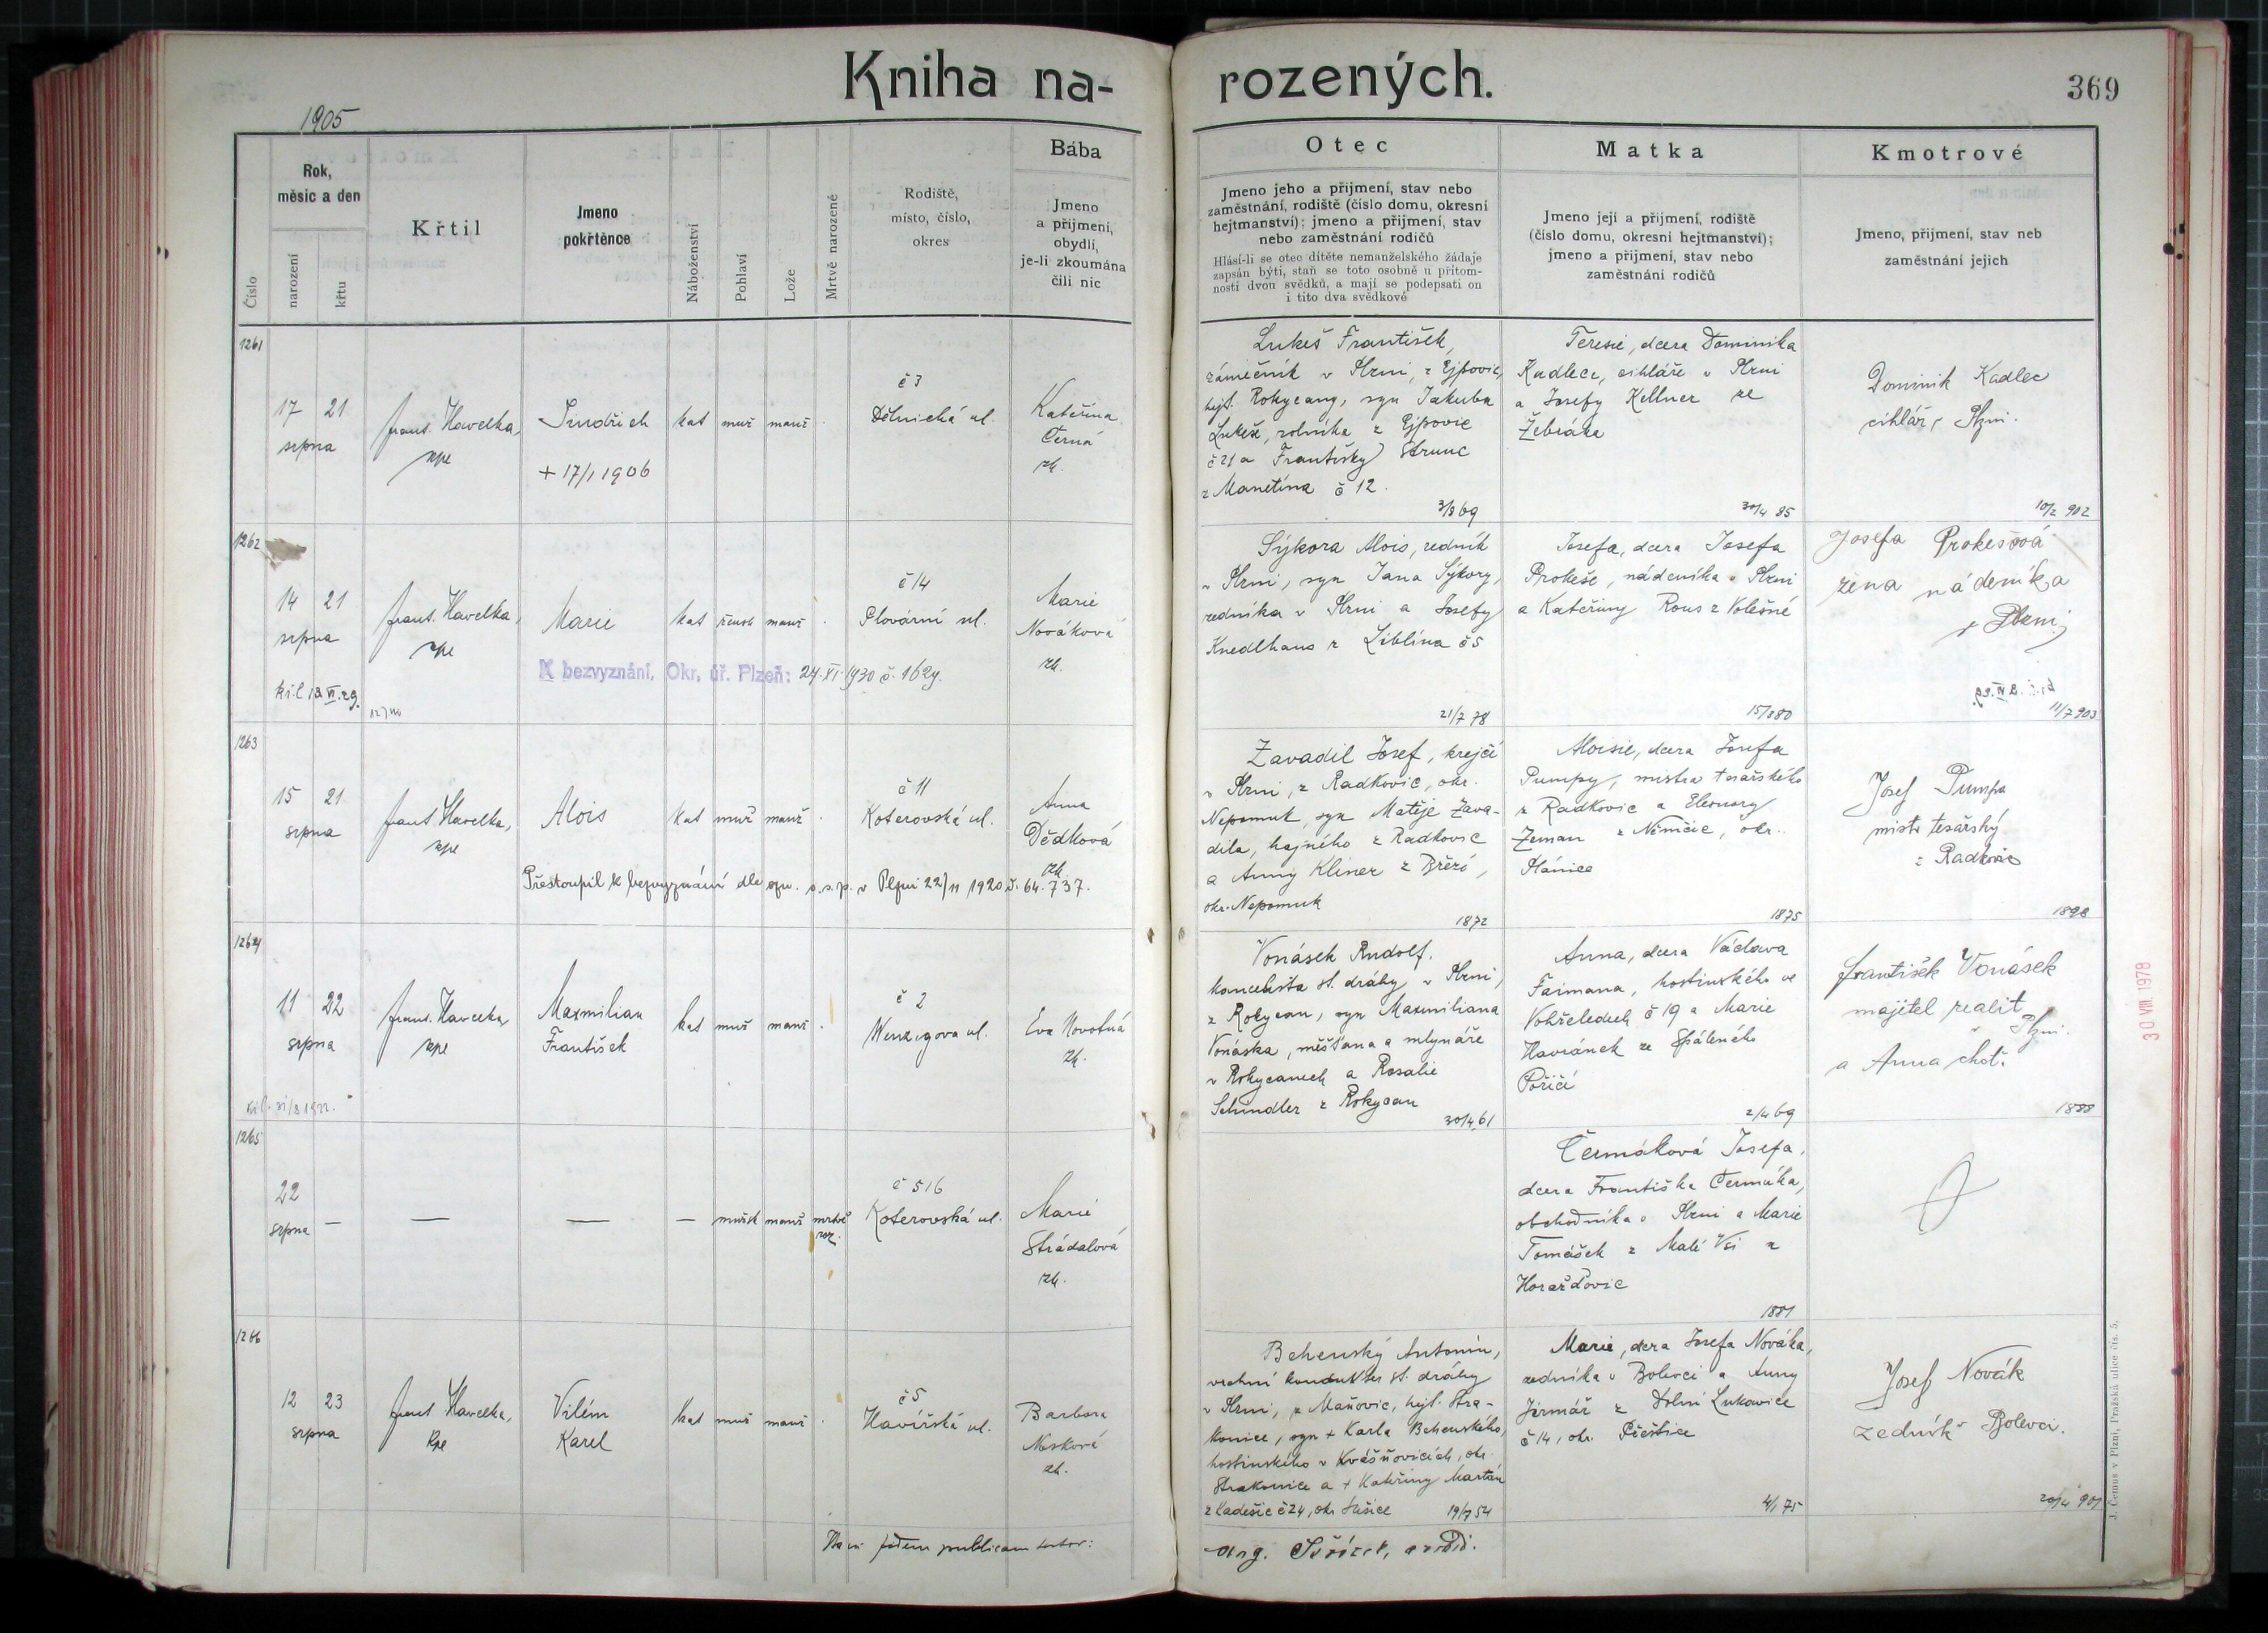 Kniha na-
rozených.
369
1905
Číslo
Rok,
měsíc a den
narození
křtu
Křtil
Jmeno
pokřtěnce
Náboženství
Pohlaví
Lože
Mrtvě narozené
Rodiště,
místo, číslo,
okres
Bába
Jmeno
a přijmení,
obydlí,
je-li zkoumána
čili nic
Otec
Jmeno jeho a přijmení, stav nebo
zaměstnání, rodiště (číslo domu, okresní
hejtmanství); jmeno a přijmení, stav
nebo zaměstnání rodičů
Hlásí-li se otec dítěte nemanželského žádaje
zapsán býti, staň se toto osobně u přítom-
nosti dvou svědků, a mají se podepsati on
i tito dva svědkové
Matka
Jmeno její a přijmení, rodiště
(číslo domu, okresní hejtmanství);
jmeno a přijmení, stav nebo
zaměstnání rodičů
Kmotrové
Jmeno, přijmení, stav neb
zaměstnání jejich
1261
17 21
srpna
Frant. Havelka,
kpe
Jindřich
+ 17/1 1906
kat muž manž
č 3
Dělnická ul.
Kateřina
Černá
zk.
Lukeš František,
zámečník v Plzni, z Ejpovic,
hejt. Rokycany, syn Jakuba
Lukeše, rolníka z Ejpovic
č 21 a Františky Strunc
z Manětína č 12.
3/3 69
Teresie, dcera Dominika
Kadlece, cihláře v Plzni
a Josefy Kellner ze
Žebráka
30/4 85
Dominik Kadlec
cihlář, Plzni.
10/2 902
1262
14 21
srpna
Frant. Havelka,
kpe
Marie
kat žensk manž
č 14
Plovární ul.
Marie
Nováková
zk.
kř. l. 12 VI. 29.
K bezvyznání, Okr. úř. Plzeň: 24. XI. 1930 č. 1629.
Sýkora Alois, zedník
v Plzni, syn Jana Sýkory,
zedníka v Plzni a Josefy
Knedlhans z Liblína č 5
21/7 78
Josefa, dcera Josefa
Prokeše, nádeníka v Plzni
a Kateřiny Rous z Volešné
15/8 80
Josefa Prokešová
žena nádeníka
v Plzni
11/7 903
1263
15 21
srpna
Frant. Havelka,
kpe
Alois
kat muž manž
č 11
Koterovská ul.
Anna
Dědková
zk.
Přestoupil k bezvyznání dle ozn. o. s. p. v Plzni 22/11 1920 č. 64.737.
Zavadil Josef, krejčí
v Plzni, z Radkovic, okr.
Nepomuk, syn Matěje Zava-
dila, hajného z Radkovic
a Anny Kliner z Březí,
okr. Nepomuk
1872
Aloisie, dcera Josefa
Pumpy, mistra tesařského
z Radkovic a Eleonory
Zeman z Němčic, okr.
Plánice
1875
Josef Pumpa
mistr tesařský
z Radkovic
1898
1264
11 22
srpna
Frant. Havelka
kpe
Maxmilian
František
kat muž manž
č 2
Wenzigova ul.
Eva Novotná
zk.
Vonásek Rudolf.
kancelista st. dráhy v Plzni,
z Rokycan, syn Maxmiliana
Vonáska, měšťana a mlynáře
v Rokycanech a Rosalie
Schindler z Rokycan
30/4 61
Anna, dcera Václava
Faimana, hostinského ve
Vohřeledech č 19 a Marie
Havránek ze Spáleného
Poříčí
2/4 69
František Vonásek
majitel realit
Plzni.
a Anna choť.
1888
30 VIII. 1978
1265
22
srpna
— — — —
mužsk manž mrtvě
roz.
č 516
Koterovská ul.
Marie
Strádalová
zk.
Čermáková Josefa,
dcera Františka Čermáka,
obchodníka v Plzni a Marie
Tomášek z Malé Vsi u
Horažďovic
1881
1266
12 23
srpna
Frant Havelka,
kpe
Vilém
Karel
kat muž manž
č 5
Havířská ul.
Barbora
Nosková
zk.
Behenský Antonín,
vrchní kondukter st. dráhy
v Plzni, z Maňovic, hejt. Stra-
konice, syn + Karla Behenského,
hostinského v Kvášňovicích, okr.
Strakonice a + Kateřiny Martan
z Kadešic č 24, okr. Sušice
19/7 54
Marie, dcera Josefa Nováka,
zedníka v Bolevci a Anny
Jirmář z Dolní Lukavice
č 14, okr. Přeštice
4/1 75
Josef Novák
zedník Bolevci.
20/4 901
fidem publicam testor:
J. Černus v Plzni, Pražská ulice čís. 5.